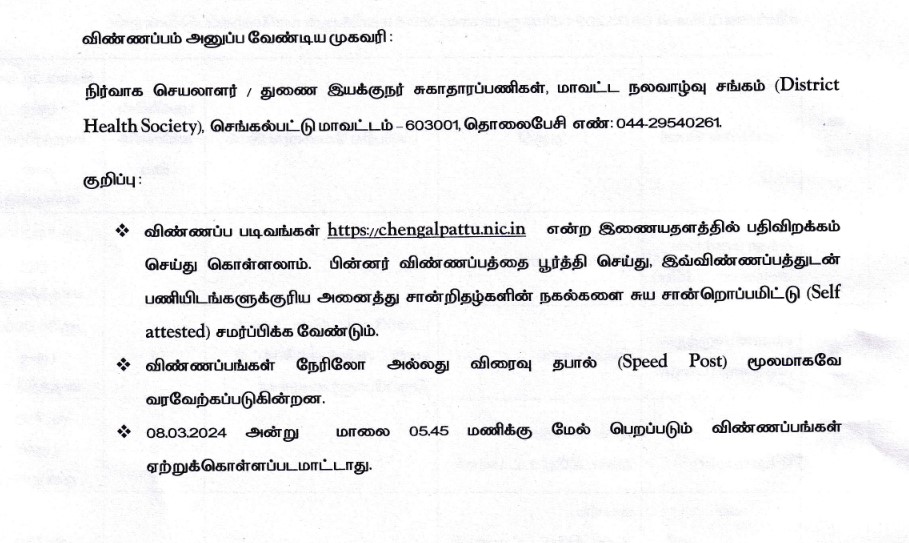 விண்ணப்பம் அனுப்ப வேண்டிய முகவரி :
நிர்வாக செயலாளர் / துணை இயக்குநர் சுகாதாரப்பணிகள், மாவட்ட நலவாழ்வு சங்கம் (District
Health Society), செங்கல்பட்டு மாவட்டம் – 603001, தொலைபேசி எண்: 044-29540261.
குறிப்பு :
❖ விண்ணப்ப படிவங்கள் https://chengalpattu.nic.in என்ற இணையதளத்தில் பதிவிறக்கம்
செய்து கொள்ளலாம். பின்னர் விண்ணப்பத்தை பூர்த்தி செய்து, இவ்விண்ணப்பத்துடன்
பணியிடங்களுக்குரிய அனைத்து சான்றிதழ்களின் நகல்களை சுய சான்றொப்பமிட்டு (Self
attested) சமர்ப்பிக்க வேண்டும்.
❖ விண்ணப்பங்கள் நேரிலோ அல்லது விரைவு தபால் (Speed Post) மூலமாகவே
வரவேற்கப்படுகின்றன.
❖ 08.03.2024 அன்று மாலை 05.45 மணிக்கு மேல் பெறப்படும் விண்ணப்பங்கள்
ஏற்றுக்கொள்ளப்படமாட்டாது.